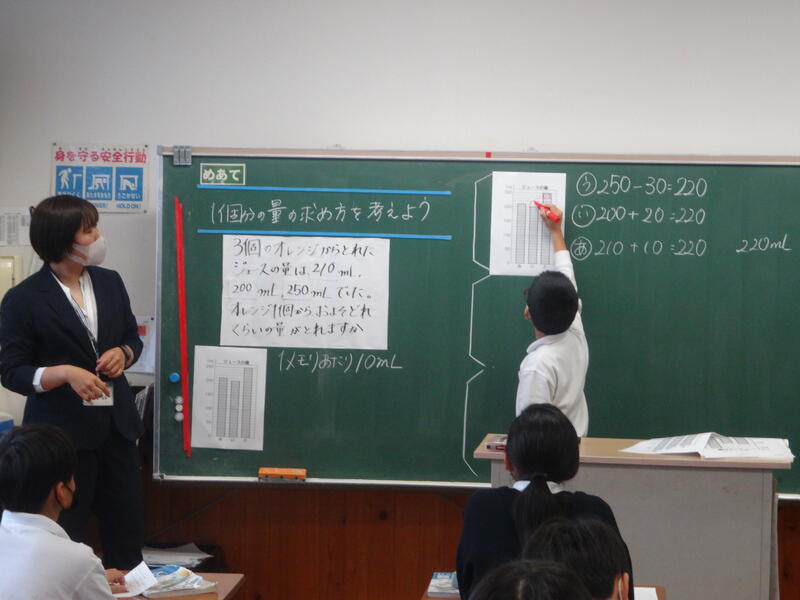 身を守る安全行動
HOLD ON!
めあて
1個分の量の求め方を考えよう
3個のオレンジからとれた
ジュースの量は、210mL、
200mL、250mLでした。
オレンジ1個からおよそどれ
くらいの量がとれますか
1メモリあたり10mL
ジュースの量
ジュースの量
う250-30=220
い200+20=220
あ210+10=220
220mL